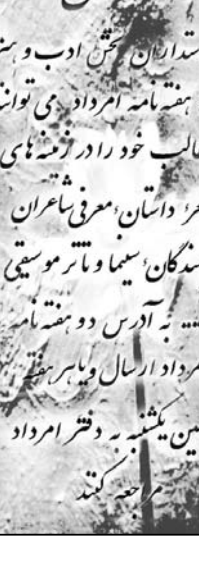 ستداران بخش ادب و هنر
هفته نامه امرداد می توانند
طالب خود را در زمینه های
عر، داستان، معرفی شاعران
سندگان، سینما و تاتر موسیقی
... به آدرس دو هفته نامه
مرداد ارسال و یا هر هفته
ین یکشنبه به دفتر امرداد
مراجعه کنند